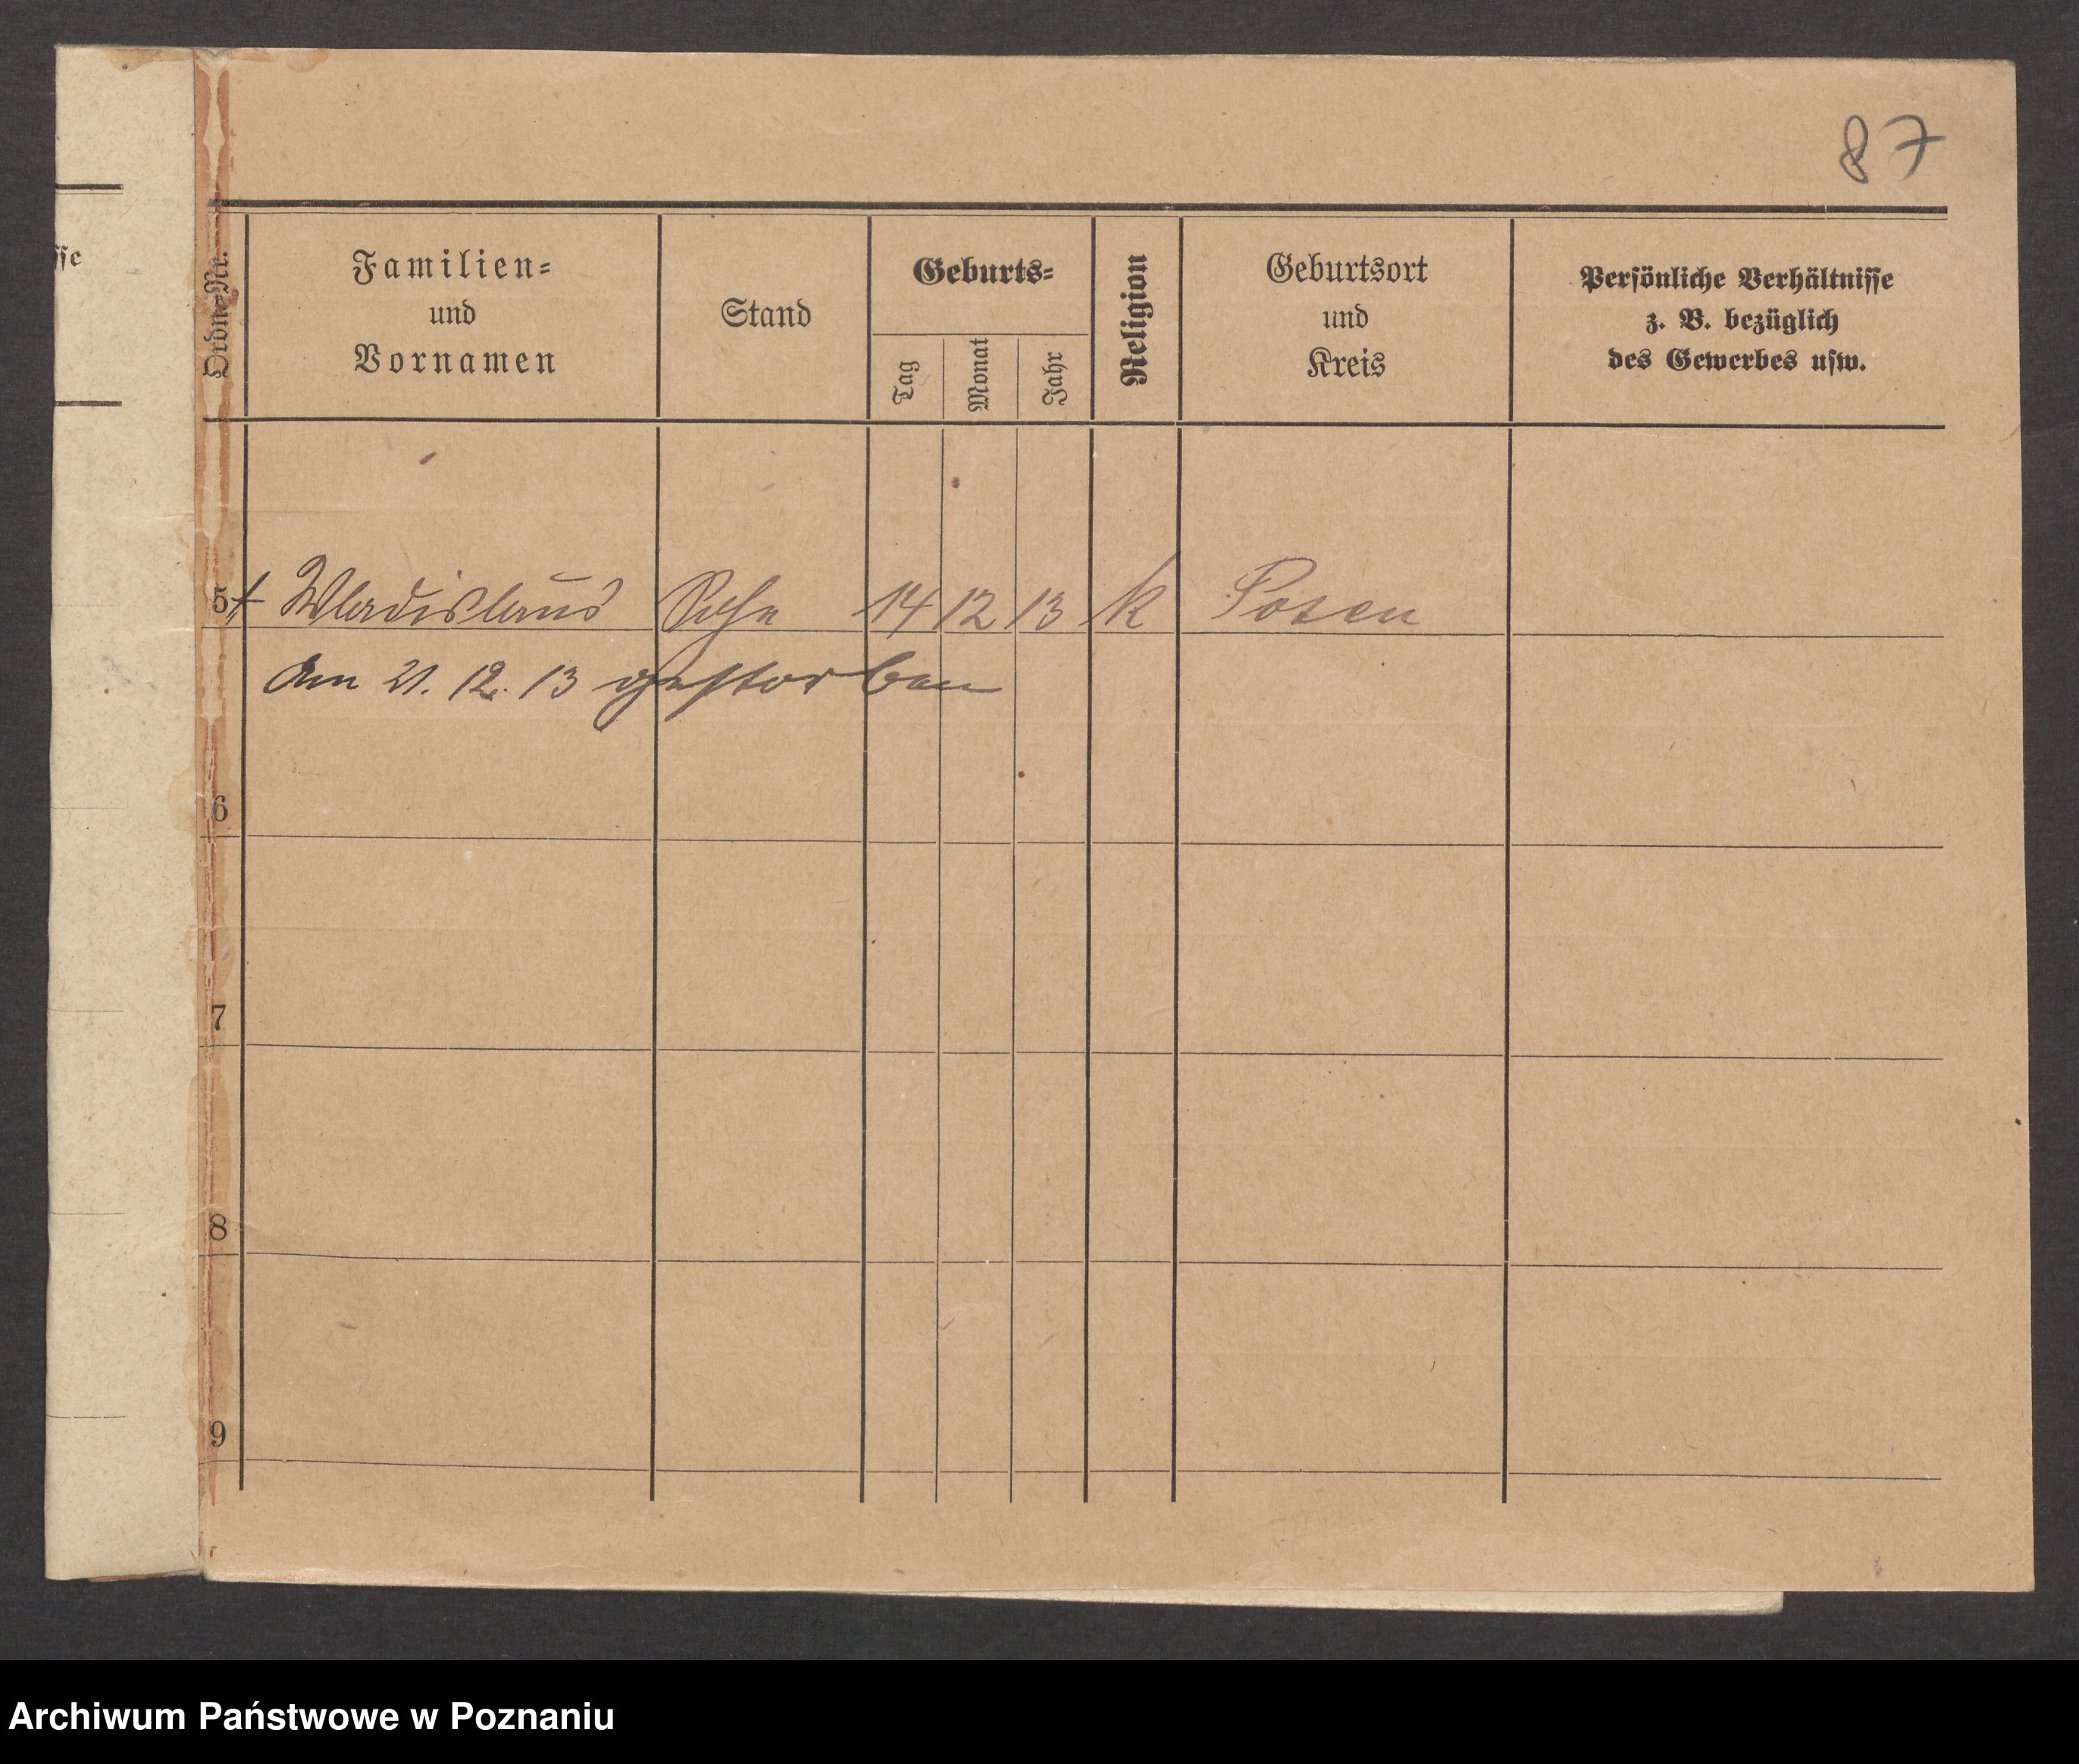 87
sse
Ordn.-Nr.
Familien-
und
Vornamen
Stand
Geburts-
Tag
Monat
Jahr
Religion
Geburtsort
und
Kreis
Persönliche Verhältnisse
z. B. bezüglich
des Gewerbes usw.
5 † Wladislaus Sohn 14 12 13 k Posen
Am 21. 12. 13 gestorben
6
7
8
9
Archiwum Państwowe w Poznaniu